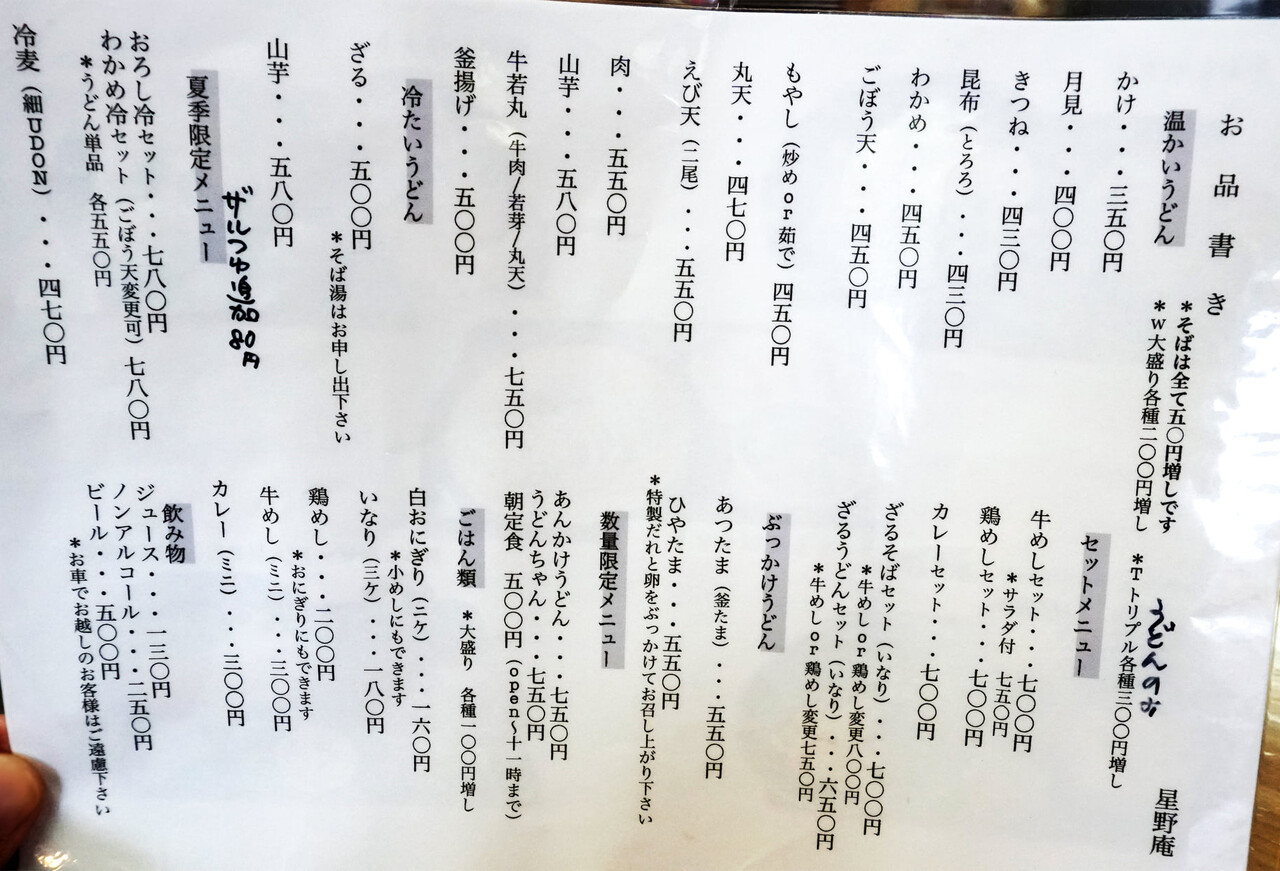 お品書き
*そばは全て五〇円増しです
*W大盛り各種二〇〇円増し
*Tトリプル各種三〇〇円増し
うどんのみ
星野庵
温かいうどん
かけ・・・三五〇円
月見・・・四〇〇円
きつね・・・四三〇円
昆布（とろろ）・・・四三〇円
わかめ・・・四五〇円
ごぼう天・・・四五〇円
もやし（炒めor茹で）四五〇円
丸天・・・四七〇円
えび天（二尾）・・・五五〇円
肉・・・五五〇円
山芋・・・五八〇円
牛若丸（牛肉/若芽/丸天）・・・七五〇円
釜揚げ・・・五〇〇円
冷たいうどん
ざる・・・五〇〇円
*そば湯はお申し出下さい
山芋・・・五八〇円
ザルつゆ追加80円
夏季限定メニュー
おろし冷セット・・・七八〇円
わかめ冷セット（ごぼう天変更可）七八〇円
*うどん単品 各五五〇円
冷麦（細UDON）・・・四七〇円
セットメニュー
牛めしセット・・・七〇〇円
*サラダ付 七五〇円
鶏めしセット・・・七〇〇円
カレーセット・・・七〇〇円
ざるそばセット（いなり）・・・七〇〇円
*牛めしor鶏めし変更八〇〇円
ざるうどんセット（いなり）・・・六五〇円
*牛めしor鶏めし変更七五〇円
ぶっかけうどん
あつたま（釜たま）・・・五五〇円
ひやたま・・・五五〇円
*特製だれと卵をぶっかけてお召し上がり下さい
数量限定メニュー
あんかけうどん・・・七五〇円
うどんちゃん・・・七五〇円
朝定食 五〇〇円（open～十一時まで）
ごはん類 *大盛り 各種一〇〇円増し
白おにぎり（二ケ）・・・一六〇円
*小めしにもできます
いなり（三ケ）・・・一八〇円
鶏めし・・・二〇〇円
*おにぎりにもできます
牛めし（ミニ）・・・三〇〇円
カレー（ミニ）・・・三〇〇円
飲み物
ジュース・・・一三〇円
ノンアルコール・・・二五〇円
ビール・・・五〇〇円
*お車でお越しのお客様はご遠慮下さい